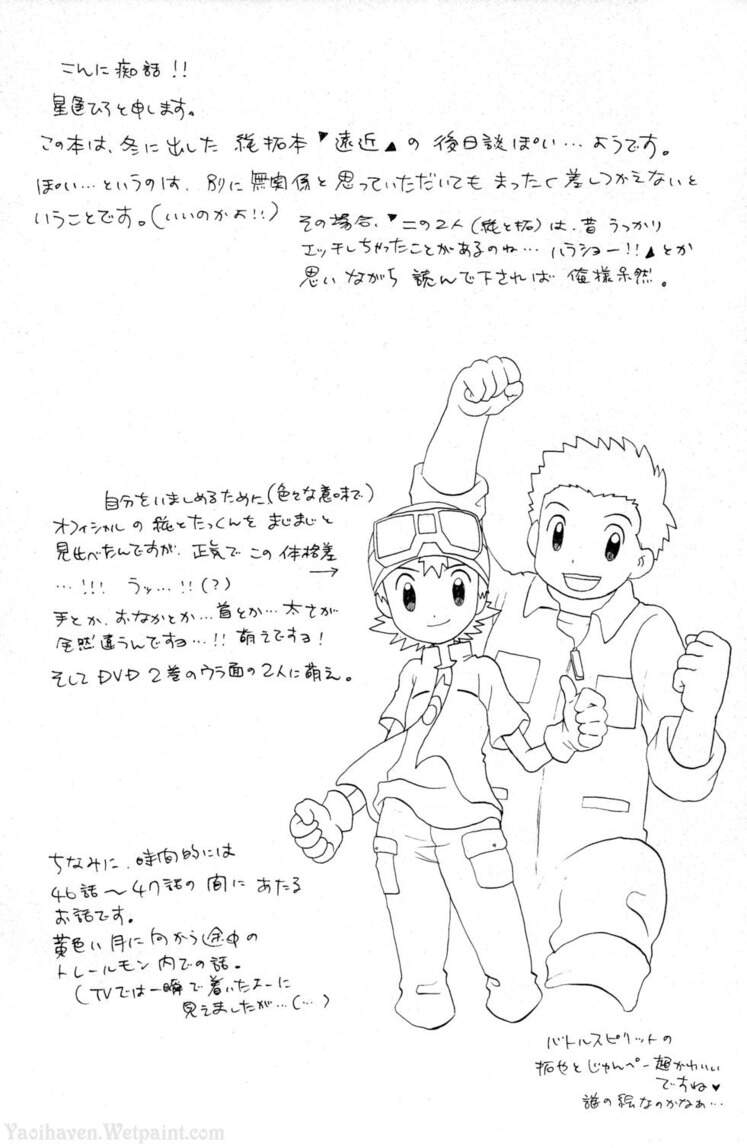 こんに痴話!!
星色ひろと申します。
この本は、冬に出した 純拓本▼遠近▲の 後日談ぽい…ようです。
ぽい…というのは、別に無関係と思っていただいてもまったく差しつかえないと
いうことです。(いいのかよ!!)
その場合、▼この2人(純と拓)は、昔 うっかり
エッチしちゃったことがあるのね…ハラショー!!▲とか
思いながら 読んで下されば 俺様呆然。
自分をいましめるために(色々な意味で)
オフィシャルの 純とたっくんを まじまじと
見比べたんですが、正気で この 体格差
…!!! うッ…!!(?) →
手とか、おなかとか…首とか…太さが
全然違うんですョ…!! 萌えですョ!
そしてDVD 2巻のウラ面の2人に萌え。
ちなみに、時間的には
46話〜47話の間に あたる
お話です。
黄色い月に向かう途中の
トレールモン内での話。
(TVでは一瞬で着いたよーに
見えましたが…(…)
バトルスピリットの
拓也とじゅんぺー超かわいい
ですね♥
誰の絵なのかなぁ…
Yaoihaven.Wetpaint.com